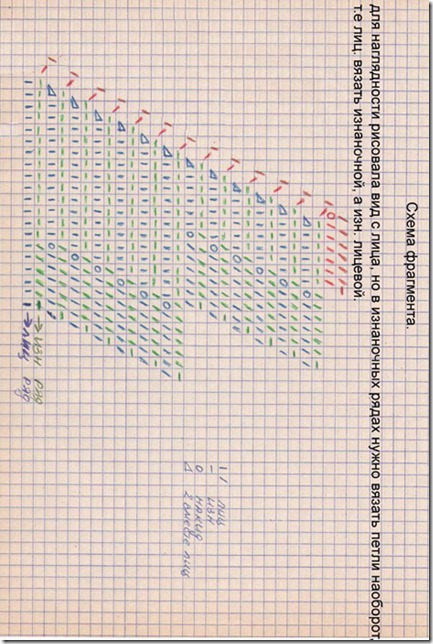 Схема фрагмента.
для наглядности рисовала вид с лица, но в изнаночных рядах нужно вязать петли наоборот
т.е лиц. вязать изнаночной, а изн. лицевой.
→ изн ряд
→ лиц ряд
| / лиц
— изн
О накид
Δ 2 вместе лиц